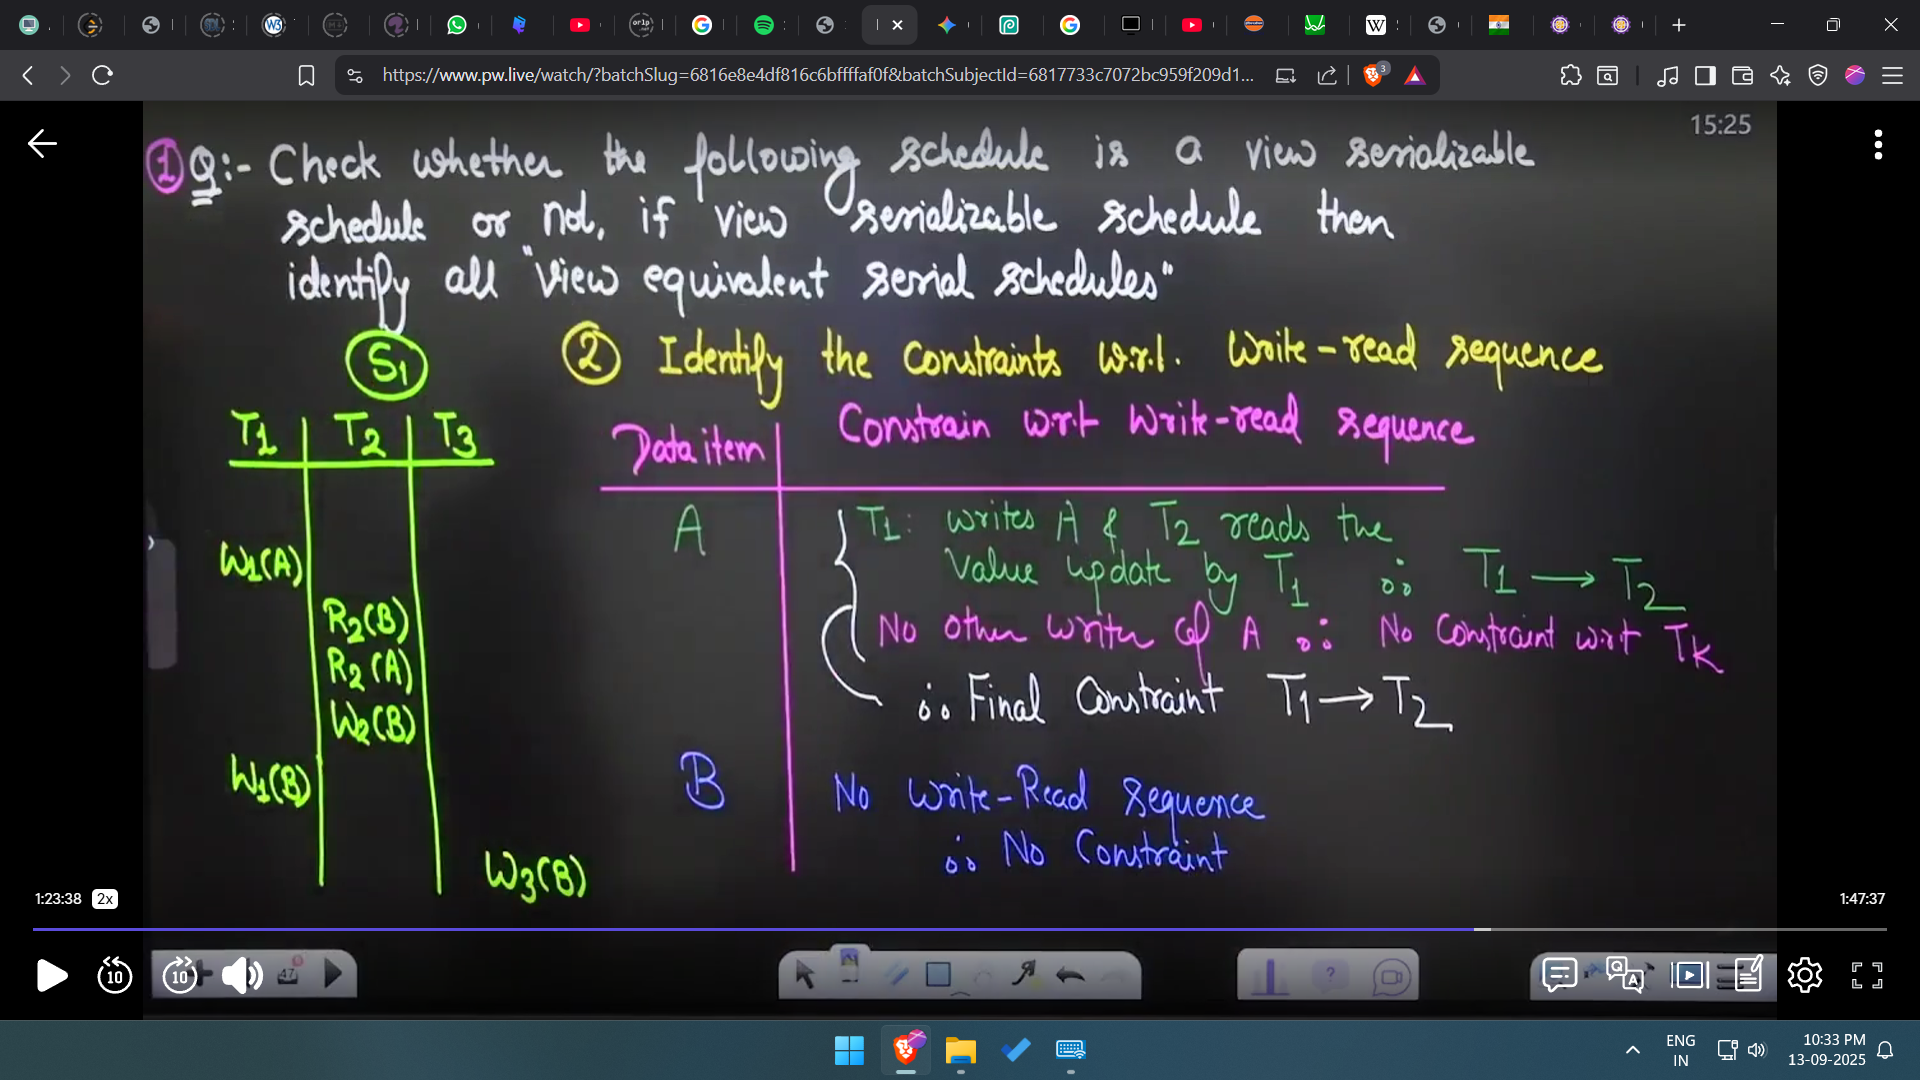 https://www.pw.live/watch/?batchSlug=6816e8e4df816c6bffffaf0f&batchSubjectId=6817733c7072bc959f209d1...
3
15:25
1 Q:- Check whether the following schedule is a view serializable
schedule or not, if view serializable schedule then
identify all "view equivalent serial schedules"
S1
2 Identify the constraints w.r.t. Write-read sequence
T1 T2 T3
Data item Constrain w.r.t Write-read sequence
A T1: writes A & T2 reads the
value update by T1 ∴ T1 → T2
No other writer of A ∴ No Constraint wrt TK
∴ Final Constraint T1 → T2
W1(A)
R2(B)
R2(A)
W2(B)
W1(B)
W3(B)
B No Write-Read sequence
∴ No Constraint
1:23:38 2x
1:47:37
10 10 47
ENG
IN
10:33 PM
13-09-2025